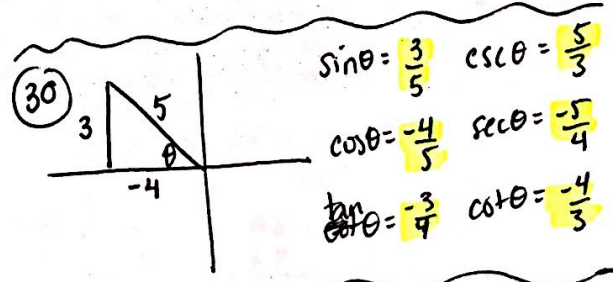 30
3
5
θ
-4
sinθ = 3/5 cscθ = 5/3
cosθ = -4/5 secθ = -5/4
tanθ = -3/4 cotθ = -4/3